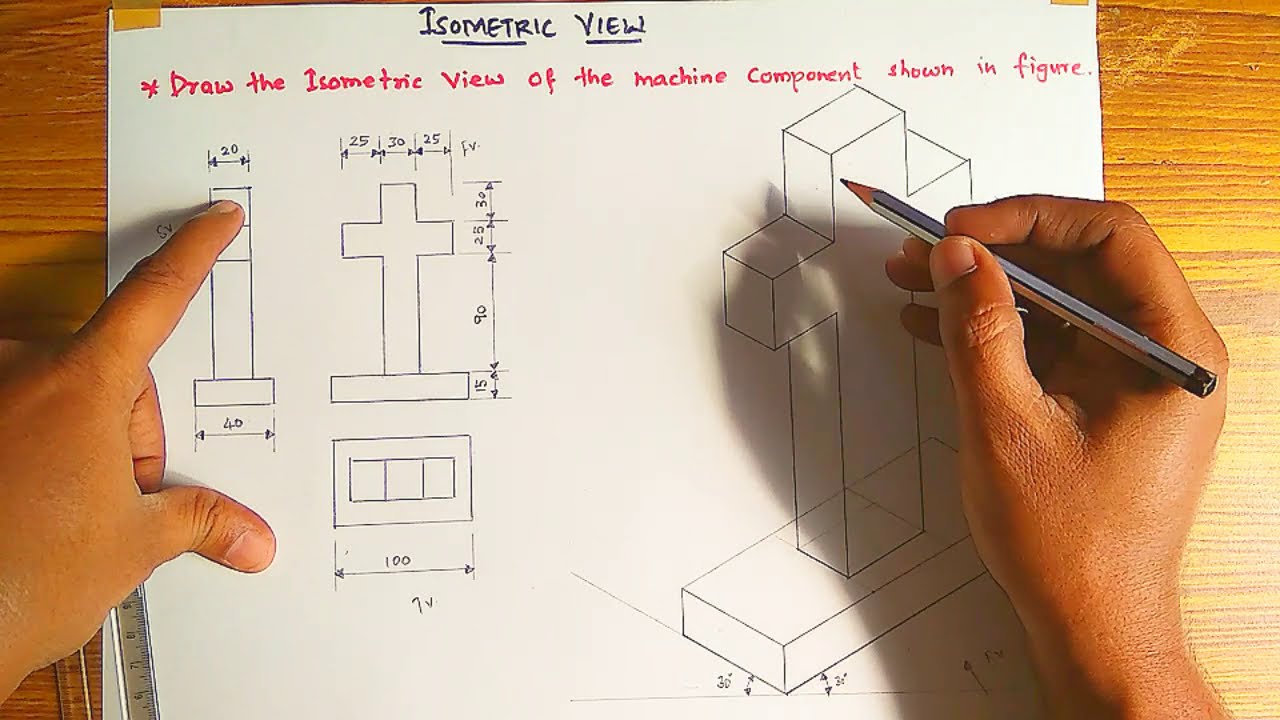 ISOMETRIC VIEW
* Draw the Isometric View of the machine Component shown in figure.
20
25 30 25 FV.
30
SV
25
90
15
40
100
TV.
30° 30°
FV